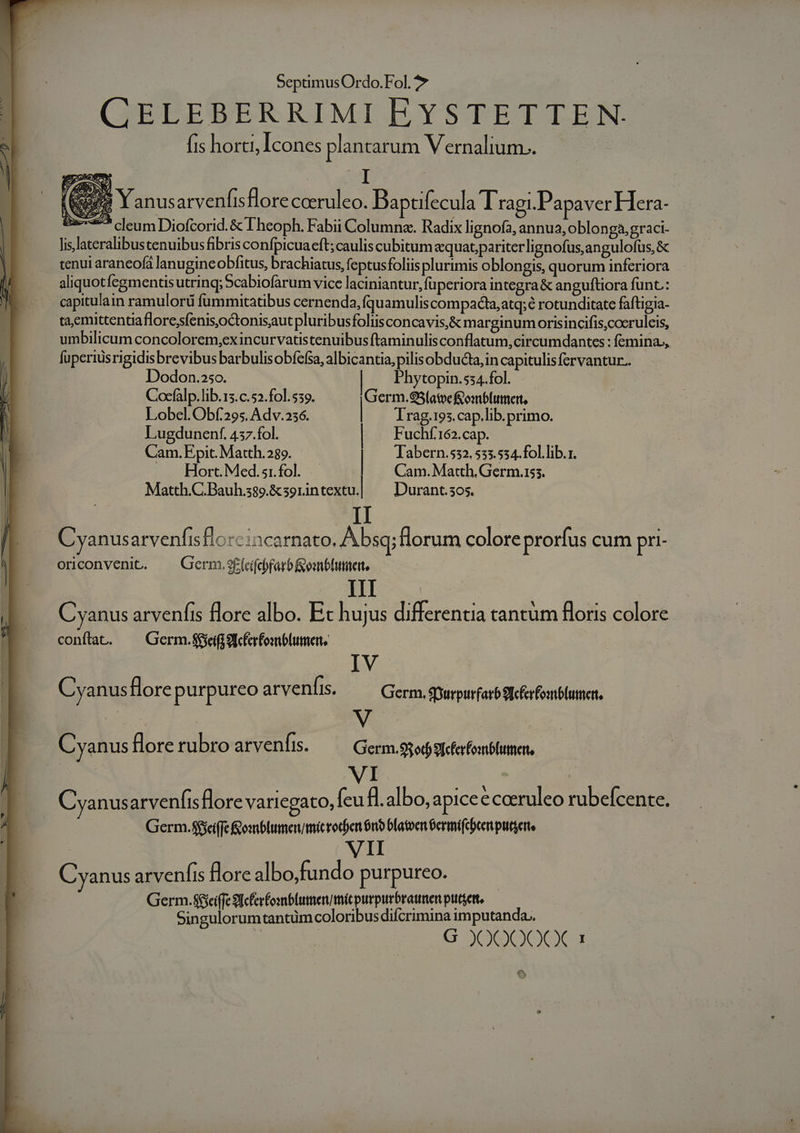 Septimus Ordo. Fol. 7
CELEBERRIMI EYSTETTEN-
ſis horti, Icones plantarum Vernalium.
I
CYanus arvenſis flore cœruleo. Baptiſecula Tragi. Papaver Hera-
cleum Dioſcorid. & Theoph. Fabii Columnæ. Radix lignoſa, annua, oblonga, graci-
lis, lateralibus tenuibus fibris conſpicua eſt; caulis cubitum æquat, pariter lignoſus, anguloſus, &
tenui araneoſâ lanugine obſitus, brachiatus, ſeptus foliis plurimis oblongis, quorum inferiora
aliquot ſegmentis utrinq; Scabioſarum vice laciniantur, ſuperiora integra & anguſtiora ſunt.:
capitula in ramulorũ ſummitatibus cernenda, ſquamulis compacta, atq; è rotunditate faſtigia-
ta, emittentia flore, sſenis, octonis, aut pluribus foliis concavis, & marginum oris inciſis, cœruleis,
umbilicum concolorem, ex incurvatis tenuibus ſtaminulis conflatum, circumdantes: ſemina,
ſuperiùs rigidis brevibus barbulis obſeſsa, albicantia, pilis obducta, in capitulis ſervantur.
Dodon. 250.
Cœſalp. lib. 15. c. 52. fol. 539.
Lobel. Obſ. 295. Adv. 236.
Lugdunenſ. 437. fol.
Cam. Epit. Matth. 289.
Hort. Med. 51. fol.
Matth. C. Bauh. 389. & 391. in textu.
Phytopin. 554. fol.
Germ. Blawe Kornblumen.
Trag. 195. cap. lib. primo.
Fuchſ. 162. cap.
Tabern. 532. 533. 534. fol. lib. 1.
Cam. Matth. Germ. 153.
Durant. 305.
II
Cyanus arvenſis flore incarnato. Absq; florum colore prorſus cum pri-
ori convenit. Germ. Fleiſchfarb Kornblumen.
III
Cyanus arvenſis flore albo. Et hujus differentia tantùm floris colore
conſtat. Germ. Weiß Ackerkornblumen.
IV
Cyanus flore purpureo arvenſis. Germ. Purpurfarb Ackerkornblumen.
V
Cyanus flore rubro arvenſis. Germ. Roth Ackerkornblumen.
VI
Cyanus arvenſis flore variegato, ſeu fl. albo, apice è cœruleo rubeſcente.
Germ. Weiſſe Kornblumen/mit rothen vnd blawen vermiſchten putzen.
VII
Cyanus arvenſis flore albo, fundo purpureo.
Germ. Weiſſe Ackerkornblumen/mit purpurbraunen putzen.
Singulorum tantùm coloribus diſcrimina imputanda.
G )()()()()()( 1